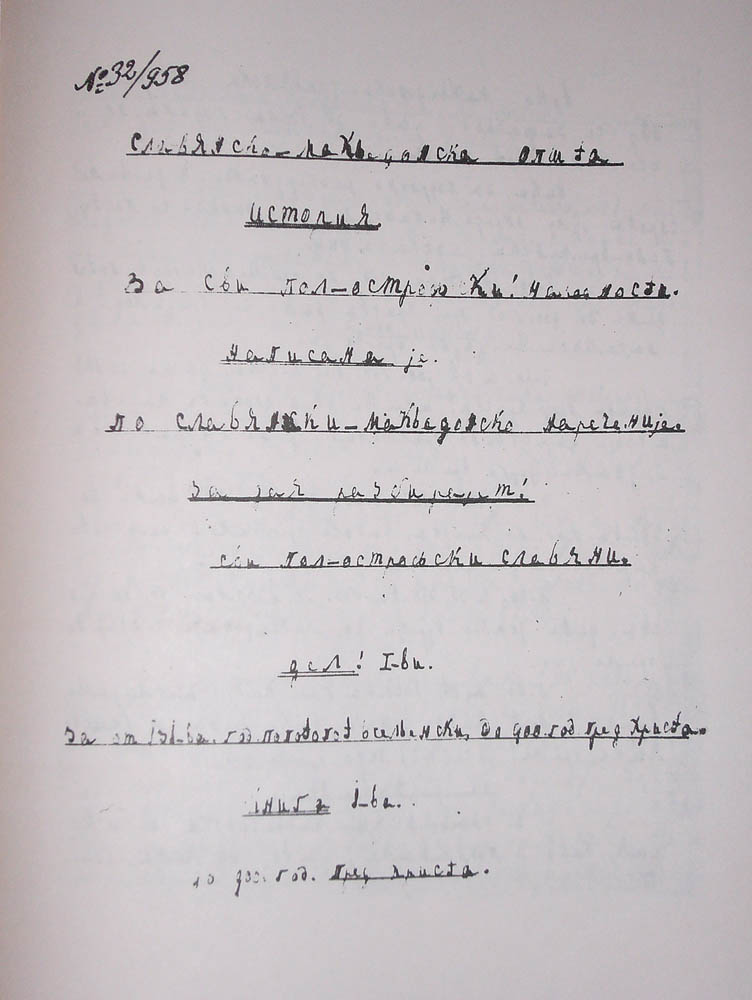 №32/958
Славянско-маќедонска општа
история.
За сви пол-острофски! народности.
написана је.
по славянски-маќедонско наречение.
За дая разбирает!
сви пол-острофски славяни.
дел! I-ви.
За от год потопот вселенски, до 900. год пред Христа.
Книга I-ва.
год. пред Христа.